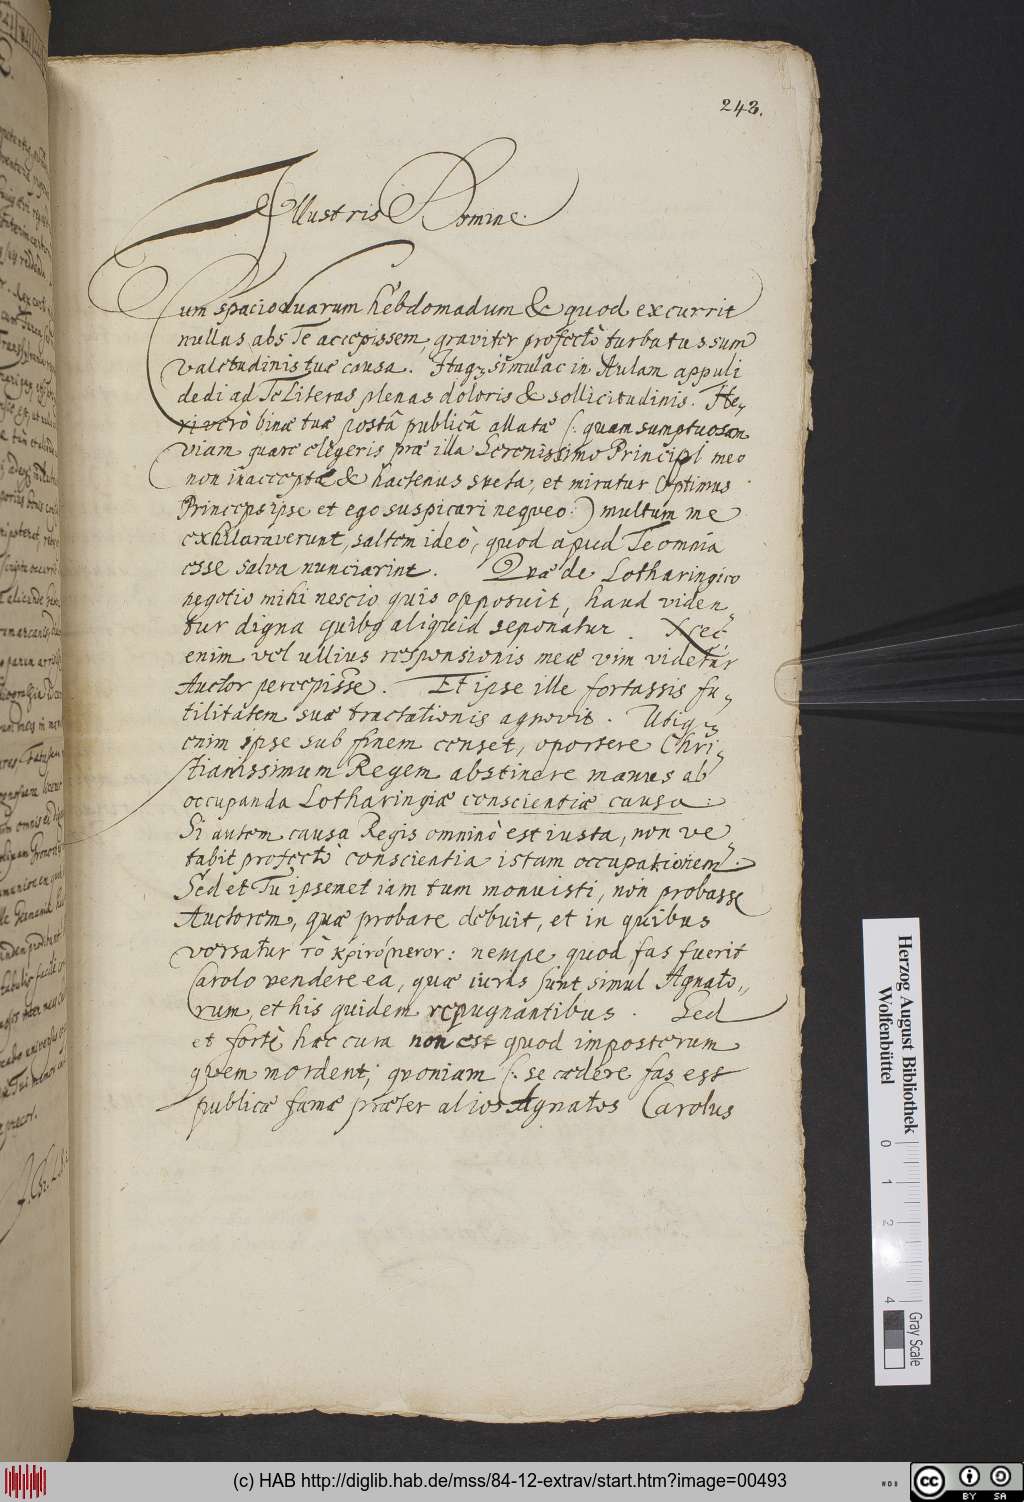 243.
Illustris Domine.
Cum spacio duarum hebdomadum & quod excurrit
nullas abs Te accepissem, graviter profectò turbatus sum
valetudinis tuæ causa. Itaq; simulac in Aulam appuli
dedi ad Te Literas plenas doloris & sollicitudinis. He,,
ri verò binæ tuæ postâ publicâ allatæ (: quam sumptuosam
viam quare elegeris præ illa Serenissimo Principi meo
non inaccepta & hactenus sveta, et miratur Optimus
Princeps ipse et ego suspicari neqveo :) multum me
exhilaraverunt, saltem ideò, quod apud Te omnia
esse salva nunciarint. Quæ de Lotharingico
negotio mihi nescio quis opposuit, haud viden,,
tur digna quibq aliquid seponatur. Nec
enim vel ullius responsionis meæ vim videtur
Auctor percepisse. Et ipse ille fortassis fu,,
tilitatem suæ tractationis agnovit. Ubiq;
enim ipse sub finem censet, oportere Chri,,
stianissimum Regem abstinere manus ab
occupanda Lotharingiæ conscientiæ causa:
Si autem causa Regis omninò est iusta, non ve,,
tabit profectò conscientia istam occupationem.
Sed et Tu ipsemet iam tum monuisti, non probasse
Auctorem, quæ probare debuit, et in quibus
versatur τὸ κρινόμενον: nempe quod fas fuerit
Carolo vendere ea, quæ iuris sunt simul Agnato,,
rum, et his quidem repugnantibus. Sed
et fortè hæc cura non est quod imposterum
qvem mordent; qvoniam (: se cædere fas est
publicæ famæ præter alios Agnatos Carolus
Herzog August Bibliothek
Wolfenbüttel
0 1 2 4
Gray Scale
(c) HAB http://diglib.hab.de/mss/84-12-extrav/start.htm?image=00493
WDB
CC BY SA